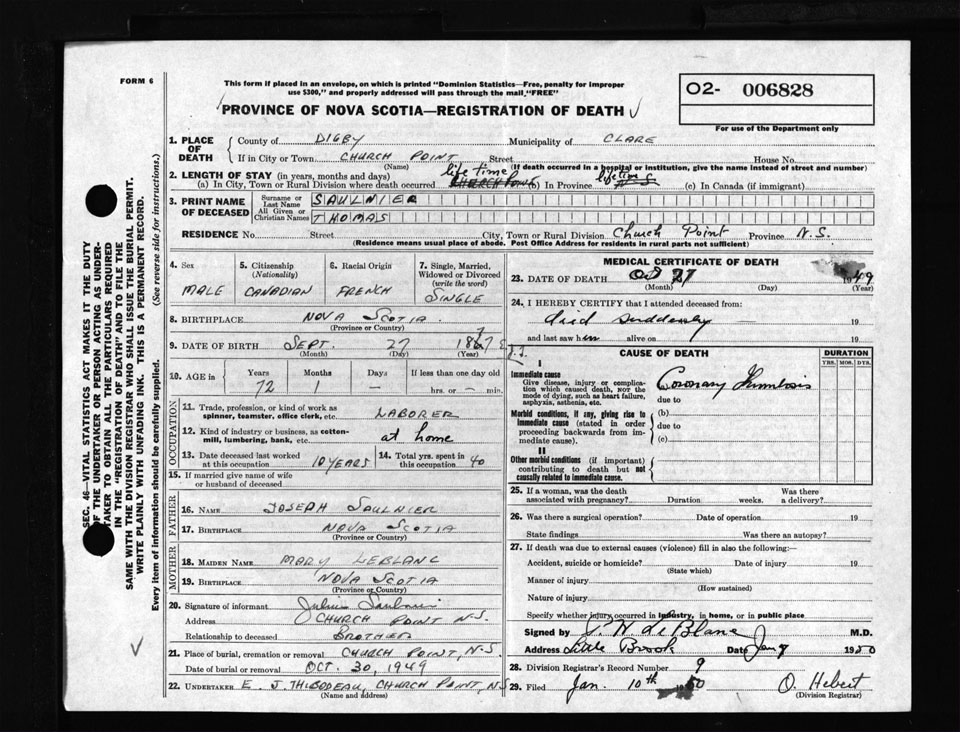 FORM 6
This form if placed in an envelope, on which is printed "Dominion Statistics—Free, penalty for improper
use $300," and properly addressed will pass through the mail "FREE"
PROVINCE OF NOVA SCOTIA—REGISTRATION OF DEATH
O2- 006828
For use of the Department only
1. PLACE OF DEATH
County of DIGBY Municipality of CLARE
If in City or Town CHURCH POINT Street House No.
(Name) (If death occurred in a hospital or institution, give the name instead of street and number)
2. LENGTH OF STAY (in years, months and days)
(a) In City, Town or Rural Division where death occurred life time CHURCH POINT (b) In Province life time (c) In Canada (if immigrant)
3. PRINT NAME OF DECEASED
Surname or Last Name SAULNIER
All Given or Christian Names THOMAS
RESIDENCE No. Street City, Town or Rural Division Church Point Province N.S.
(Residence means usual place of abode. Post Office Address for residents in rural parts not sufficient)
4. Sex
MALE
5. Citizenship
(Nationality)
CANADIAN
6. Racial Origin
FRENCH
7. Single, Married,
Widowed or Divorced
(write the word)
SINGLE
8. BIRTHPLACE NOVA SCOTIA
(Province or Country)
9. DATE OF BIRTH SEPT. 27 1877
(Month) (Day) (Year)
10. AGE in Years Months Days If less than one day
72 1 — hrs. or — min.
OCCUPATION
11. Trade, profession, or kind of work as
spinner, teamster, office clerk, etc. LABORER
12. Kind of industry or business, as cotten-
mill, lumbering, bank, etc. at home
13. Date deceased last worked
at this occupation 10 YEARS
14. Total yrs. spent in
this occupation 40
15. If married give name of wife
or husband of deceased
FATHER
16. NAME JOSEPH SAULNIER
17. BIRTHPLACE NOVA SCOTIA
(Province or Country)
MOTHER
18. MAIDEN NAME MARY LEBLANC
19. BIRTHPLACE NOVA SCOTIA
(Province or Country)
20. Signature of informant Julius Saulnier
Address CHURCH POINT N.S.
Relationship to deceased BROTHER
21. Place of burial, cremation or removal CHURCH POINT, N.S.
Date of burial or removal OCT. 30, 1949
22. UNDERTAKER E. J. THIBODEAU, CHURCH POINT, N.S
(Name and address)
MEDICAL CERTIFICATE OF DEATH
23. DATE OF DEATH Oct 27 1949
(Month) (Day) (Year)
24. I HEREBY CERTIFY that I attended deceased from:
died suddenly — 19
and last saw him alive on 19
CAUSE OF DEATH
DURATION
YRS. MOS. DYS.
I
Immediate cause
Give disease, injury or complica-
tion which caused death, not the
mode of dying, such as heart failure,
asphyxia, asthenia, etc.
Coronary Thrombosis
due to
Morbid conditions, if any, giving rise to
immediate cause (stated in order
proceeding backwards from im-
mediate cause).
(b)
due to
(c)
II
Other morbid conditions (if important)
contributing to death but not
causally related to immediate cause.
25. If a woman, was the death
associated with pregnancy? Duration weeks. Was there
a delivery?
26. Was there a surgical operation? Date of operation 19
State findings Was there an autopsy?
27. If death was due to external causes (violence) fill in also the following:—
Accident, suicide or homicide? Date of injury 19
(State which)
Manner of injury
(How sustained)
Nature of injury
Specify whether injury occurred in industry, in home, or in public place
Signed by J. H. LeBlanc M.D.
Address Little Brook Date Jan 9 1950
28. Division Registrar's Record Number 9
29. Filed Jan. 10th 1950 O. Hebert
(Division Registrar)
SEC. 46—VITAL STATISTICS ACT MAKES IT THE DUTY
OF THE UNDERTAKER OR PERSON ACTING AS UNDER-
TAKER TO OBTAIN ALL THE PARTICULARS REQUIRED
IN THE "REGISTRATION OF DEATH" AND TO FILE THE
SAME WITH THE DIVISION REGISTRAR WHO SHALL ISSUE THE BURIAL PERMIT.
WRITE PLAINLY WITH UNFADING INK. THIS IS A PERMANENT RECORD.
Every item of information should be carefully supplied. (See reverse side for instructions.)